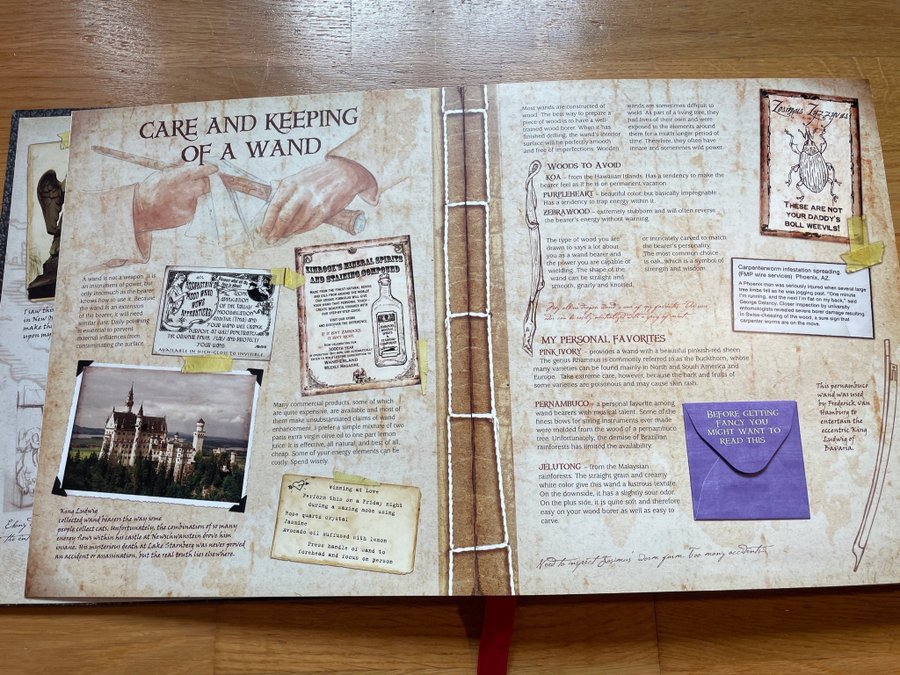 CARE AND KEEPING
OF A WAND
A wand is not a weapon. It is
an instrument of power, but
only inasmuch as the bearer
knows how to use it. Because
the wand is an extension
of the bearer, it will need
similar care. Daily polishing
is essential to prevent
external influences from
contaminating the surface.
AVAILABLE IN HIGH-GLOSS TO INVISIBLE.
KINBOOK'S MINERAL SPIRITS
AND STAINING COMPOUND
IT ISN'T KINBOOK'S
WANDERLAND
WEEKLY MAGAZINE
Many commercial products, some of which
are quite expensive, are available and most of
them make unsubstantiated claims of wand
enhancement. I prefer a simple mixture of two
parts extra virgin olive oil to one part lemon
juice. It is effective, all natural, and best of all,
cheap. Some of your energy elements can be
costly. Spend wisely.
King Ludwig
collected wand bearers the way some
people collect cats. Unfortunately, the combination of so many
energy flows within his castle at Neuschwanstein drove him
insane. His mysterious death at Lake Starnberg was never proved
an accident or assassination, but the real truth lies elsewhere.
Winning at Love
Perform this on a Friday night
during a waxing moon using
Rose quartz crystal
Jasmine
Avocado oil suffused with lemon
Press handle of wand to
forehead and focus on person
I saw this
in New
make
this
Most wands are constructed of
wood. The best way to prepare a
piece of wood is to have a well-
trained wood borer. When it has
finished drilling, the wand's interior
surface will be perfectly smooth
and free of imperfections. Wooden
wands are sometimes difficult to
wield. As part of a living tree, they
had lives of their own and were
exposed to the elements around
them for a much longer period of
time. Therefore, they often have
innate and sometimes wild power.
WOODS TO AVOID
KOA – from the Hawaiian Islands. Has a tendency to make the
bearer feel as if he is on permanent vacation.
PURPLEHEART – beautiful color, but basically impregnable.
Has a tendency to trap energy within it.
ZEBRAWOOD – extremely stubborn and will often reverse
the bearer's energy without warning.
The type of wood you are
drawn to says a lot about
you as a wand bearer and
the power you are capable of
wielding. The shape of the
wand can be straight and
smooth, gnarly and knotted,
or intricately carved to match
the bearer's personality.
The most common choice
is oak, which is a symbol of
strength and wisdom.
MY PERSONAL FAVORITES
PINK IVORY – provides a wand with a beautiful pinkish-red sheen.
The genus Rhamnus is commonly referred to as the Buckthorn, whose
many varieties can be found mainly in North and South America and
Europe. Take extreme care, however, because the bark and fruits of
some varieties are poisonous and may cause skin rash.
PERNAMBUCO – a personal favorite among
wand bearers with musical talent. Some of the
finest bows for string instruments ever made
were molded from the wood of a pernambuco
tree. Unfortunately, the demise of Brazilian
rainforests has limited the availability.
JELUTONG – from the Malaysian
rainforests. The straight grain and creamy
white color give this wand a lustrous texture.
On the downside, it has a slightly sour odor.
On the plus side, it is quite soft and therefore
easy on your wood borer as well as easy to
carve.
Zosimus Zyzzyvus
THESE ARE NOT
YOUR DADDY'S
BOLL WEEVILS!
Carpenterworm infestation spreading.
(FMP wire services) Phoenix, AZ.
A Phoenix man was seriously injured when several large
tree limbs fell as he was jogging past. "One minute
I'm running, and the next I'm flat on my back," said
George Delancy. Closer inspection by university
entomologists revealed severe borer damage resulting
in Swiss-cheesing of the wood, a sure sign that
carpenter worms are on the move.
BEFORE GETTING
FANCY YOU
MIGHT WANT TO
READ THIS
This pernambuco
wand was used
by Frederick van
Hamburg to
entertain the
eccentric King
Ludwig of
Bavaria.
Need to inspect Zosimus worm farm. Too many accidents.